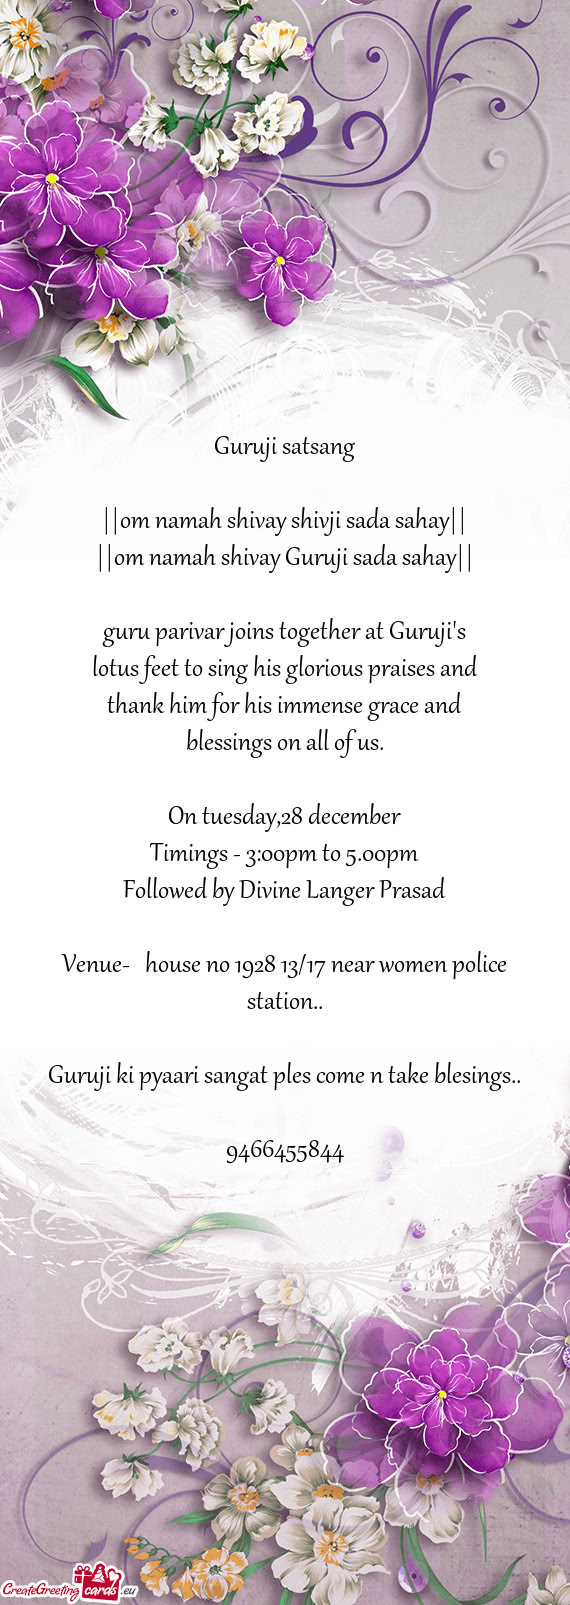 Guruji satsang
||om namah shivay shivji sada sahay||
||om namah shivay Guruji sada sahay||
guru parivar joins together at Guruji's
lotus feet to sing his glorious praises and
thank him for his immense grace and
blessings on all of us.
On tuesday,28 december
Timings - 3:00pm to 5.00pm
Followed by Divine Langer Prasad
Venue-   house no 1928 13/17 near women police
station..
Guruji ki pyaari sangat ples come n take blesings..
9466455844
CreateGreeting cards .eu